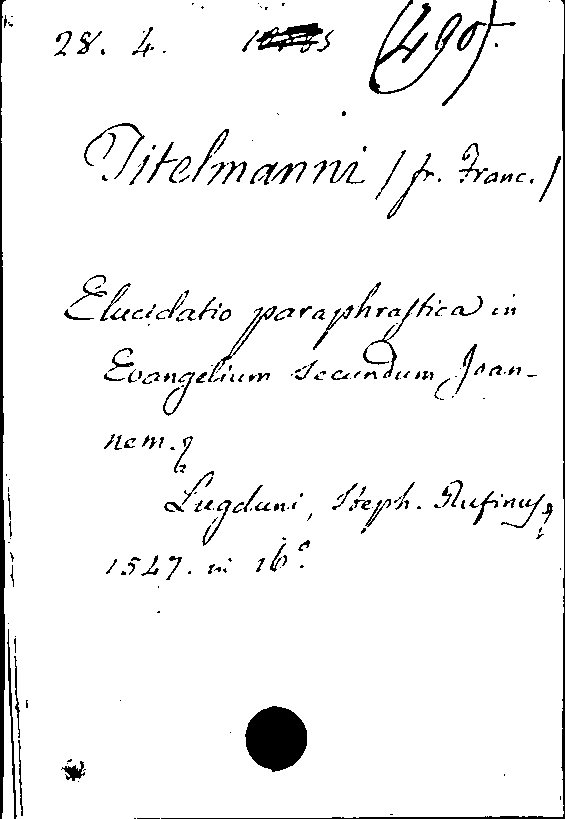 28. 4. (490).
Titelmanni / fr. Franc. /
Elucidatio paraphrastica in
Evangelium secundum Joan-
nem.
Lugduni, Steph. Rufinus,
1547. in 16°.